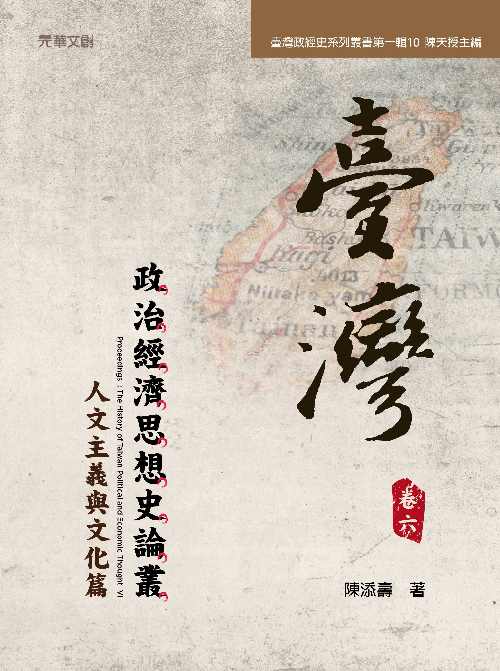 元華文創
臺灣政經史系列叢書第一輯10 陳天授主編
臺灣
政治經濟思想史論叢
Proceedings：The History of Taiwan Political and Economic Thought VI
人文主義與文化篇
卷六
陳添壽 著
TAIW